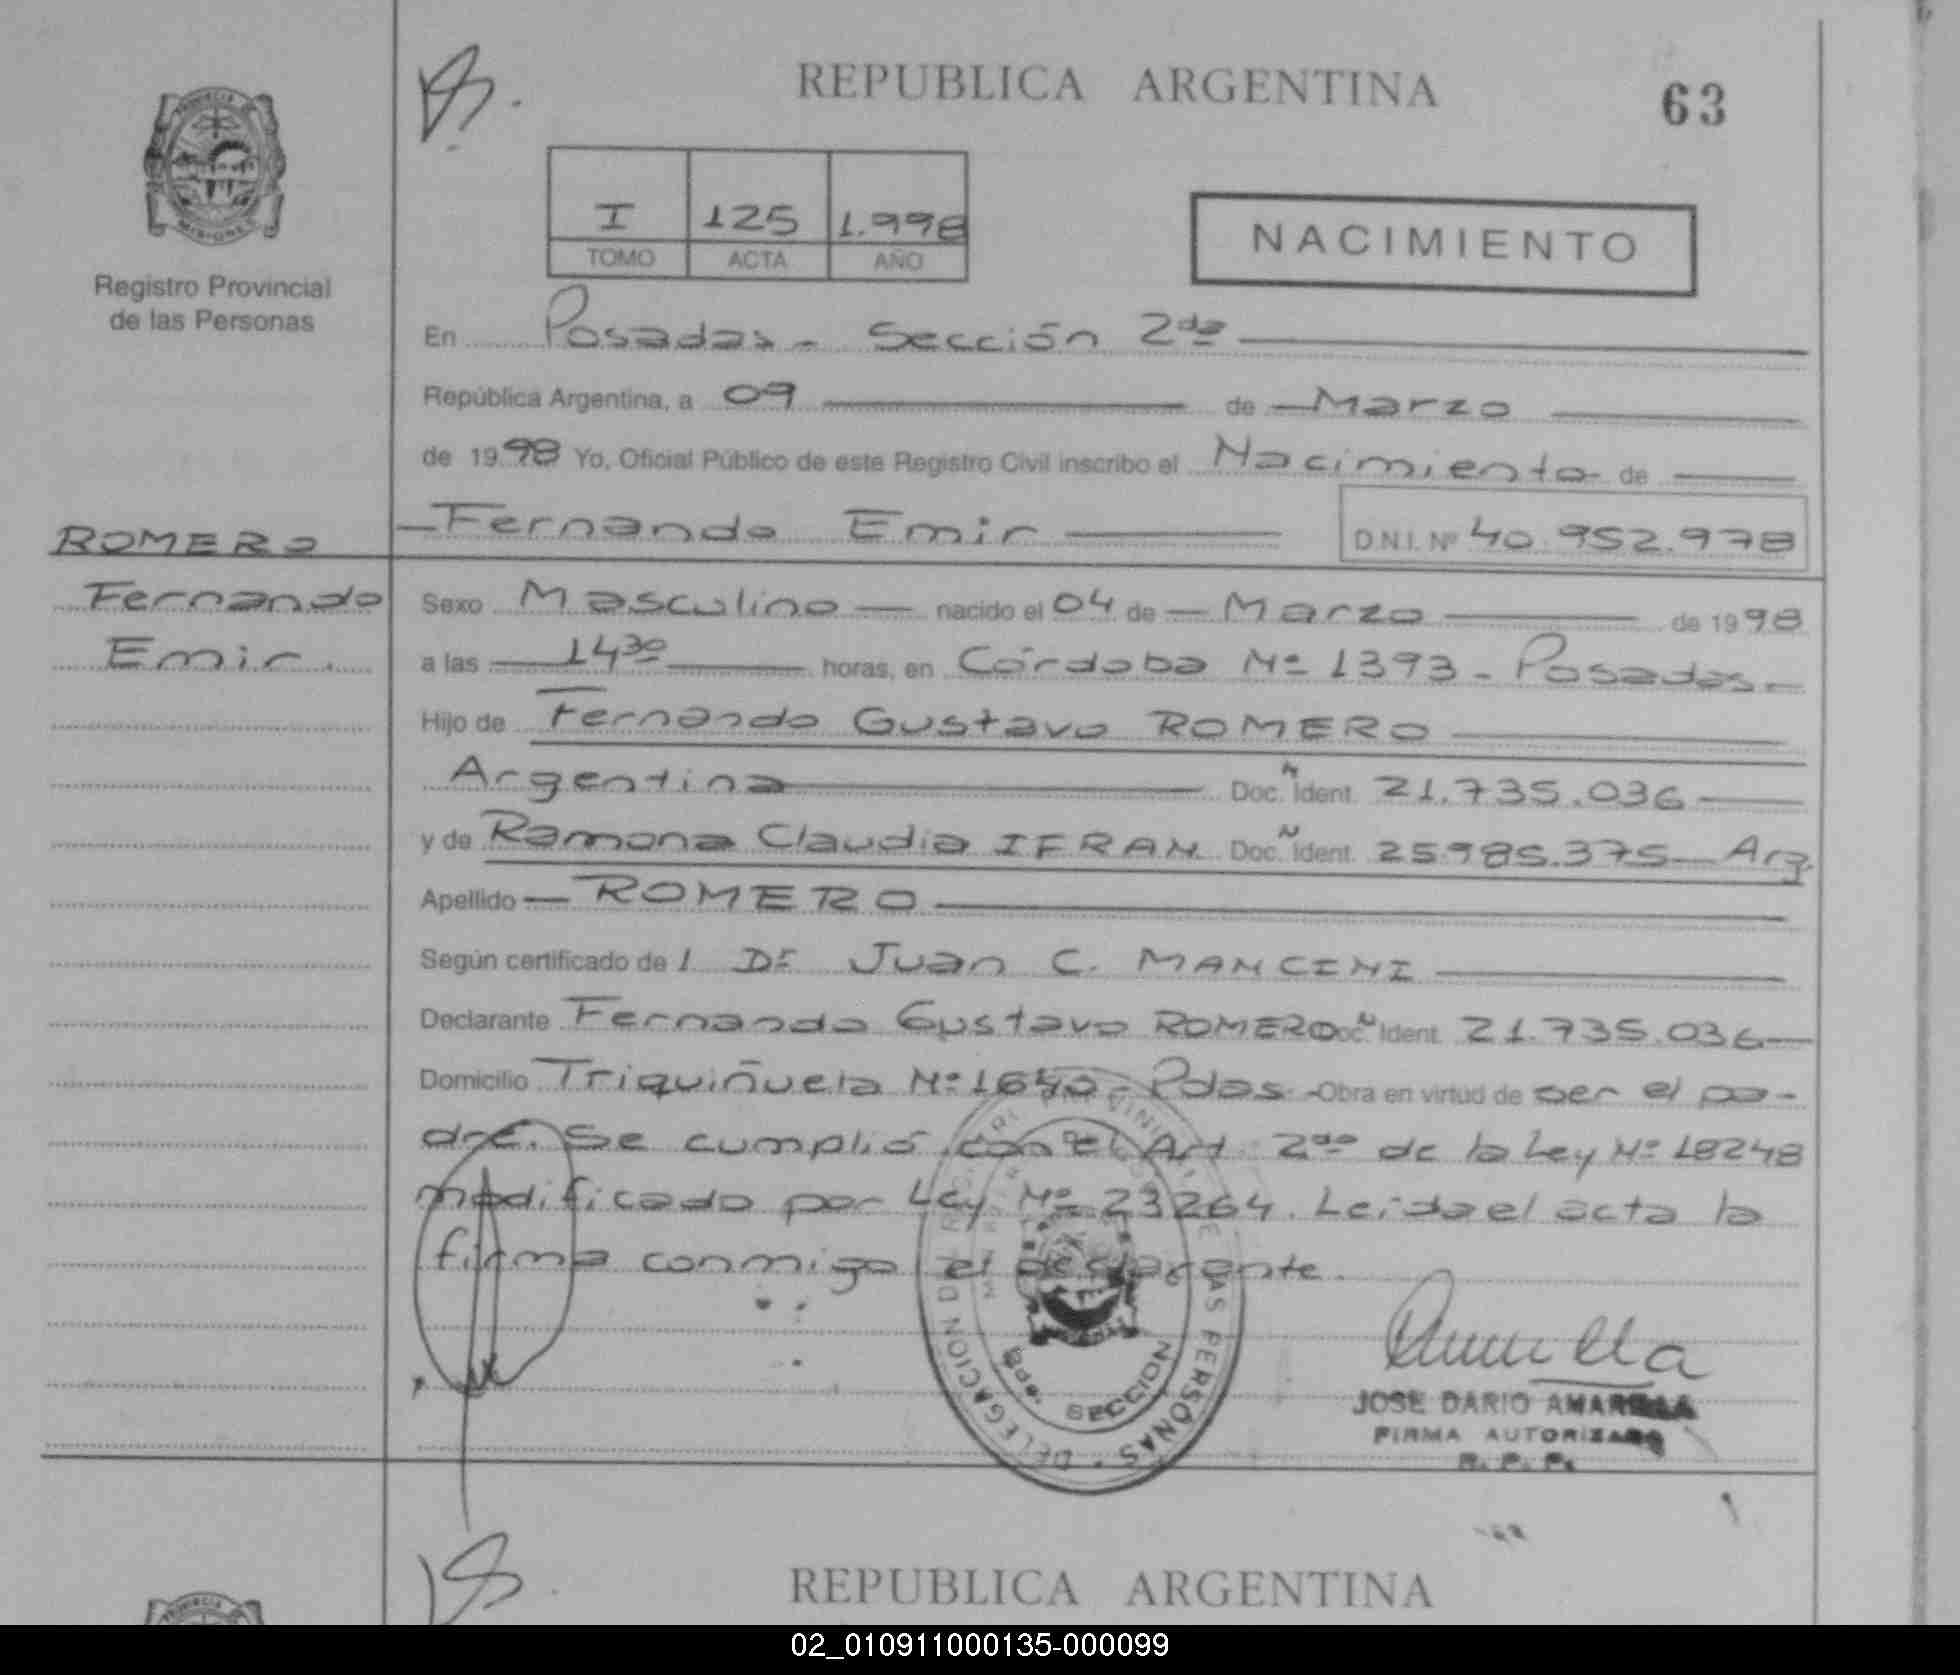 REPUBLICA ARGENTINA
63
PROVINCIA DE
MISIONES
Registro Provincial
de las Personas
I 125 1.998
TOMO ACTA AÑO
NACIMIENTO
En Posadas - Sección 2da
República Argentina, a 09 de Marzo
de 1998 Yo, Oficial Público de este Registro Civil inscribo el Nacimiento de
Fernando Emir D.N.I. Nº 40.952.978
ROMERO
Fernando
Emir.
Sexo Masculino nacido el 04 de Marzo de 1998
a las 14³⁰ horas, en Córdoba Nº 1393 - Posadas -
Hijo de Fernando Gustavo ROMERO
Argentina Doc. Ñ Ident. 21.735.036
y de Ramona Claudia IFRAN Doc. Ñ Ident. 25.985.375 - Arg.
Apellido ROMERO
Según certificado de / Dr Juan C. MANCINI
Declarante Fernando Gustavo ROMERO Doc. Ñ Ident. 21.735.036
Domicilio Triquiñuela Nº 1640 - Pdas - Obra en virtud de ser el pa-
dre. Se cumplió con el Art. 2do de la Ley Nº 18248
modificado por Ley Nº 23264. Leída el acta la
firma conmigo el declarante.
DELEGACION DEL REGISTRO PROVINCIAL DE LAS PERSONAS
SECCION
JOSE DARIO AMARILLA
FIRMA AUTORIZADA
R. P. P.
REPUBLICA ARGENTINA
PROVINCIA DE
02_010911000135-000099